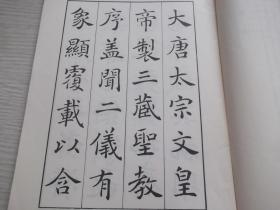 大唐太宗文皇
帝製三藏聖教
序盖聞二儀有
象顯覆載以含